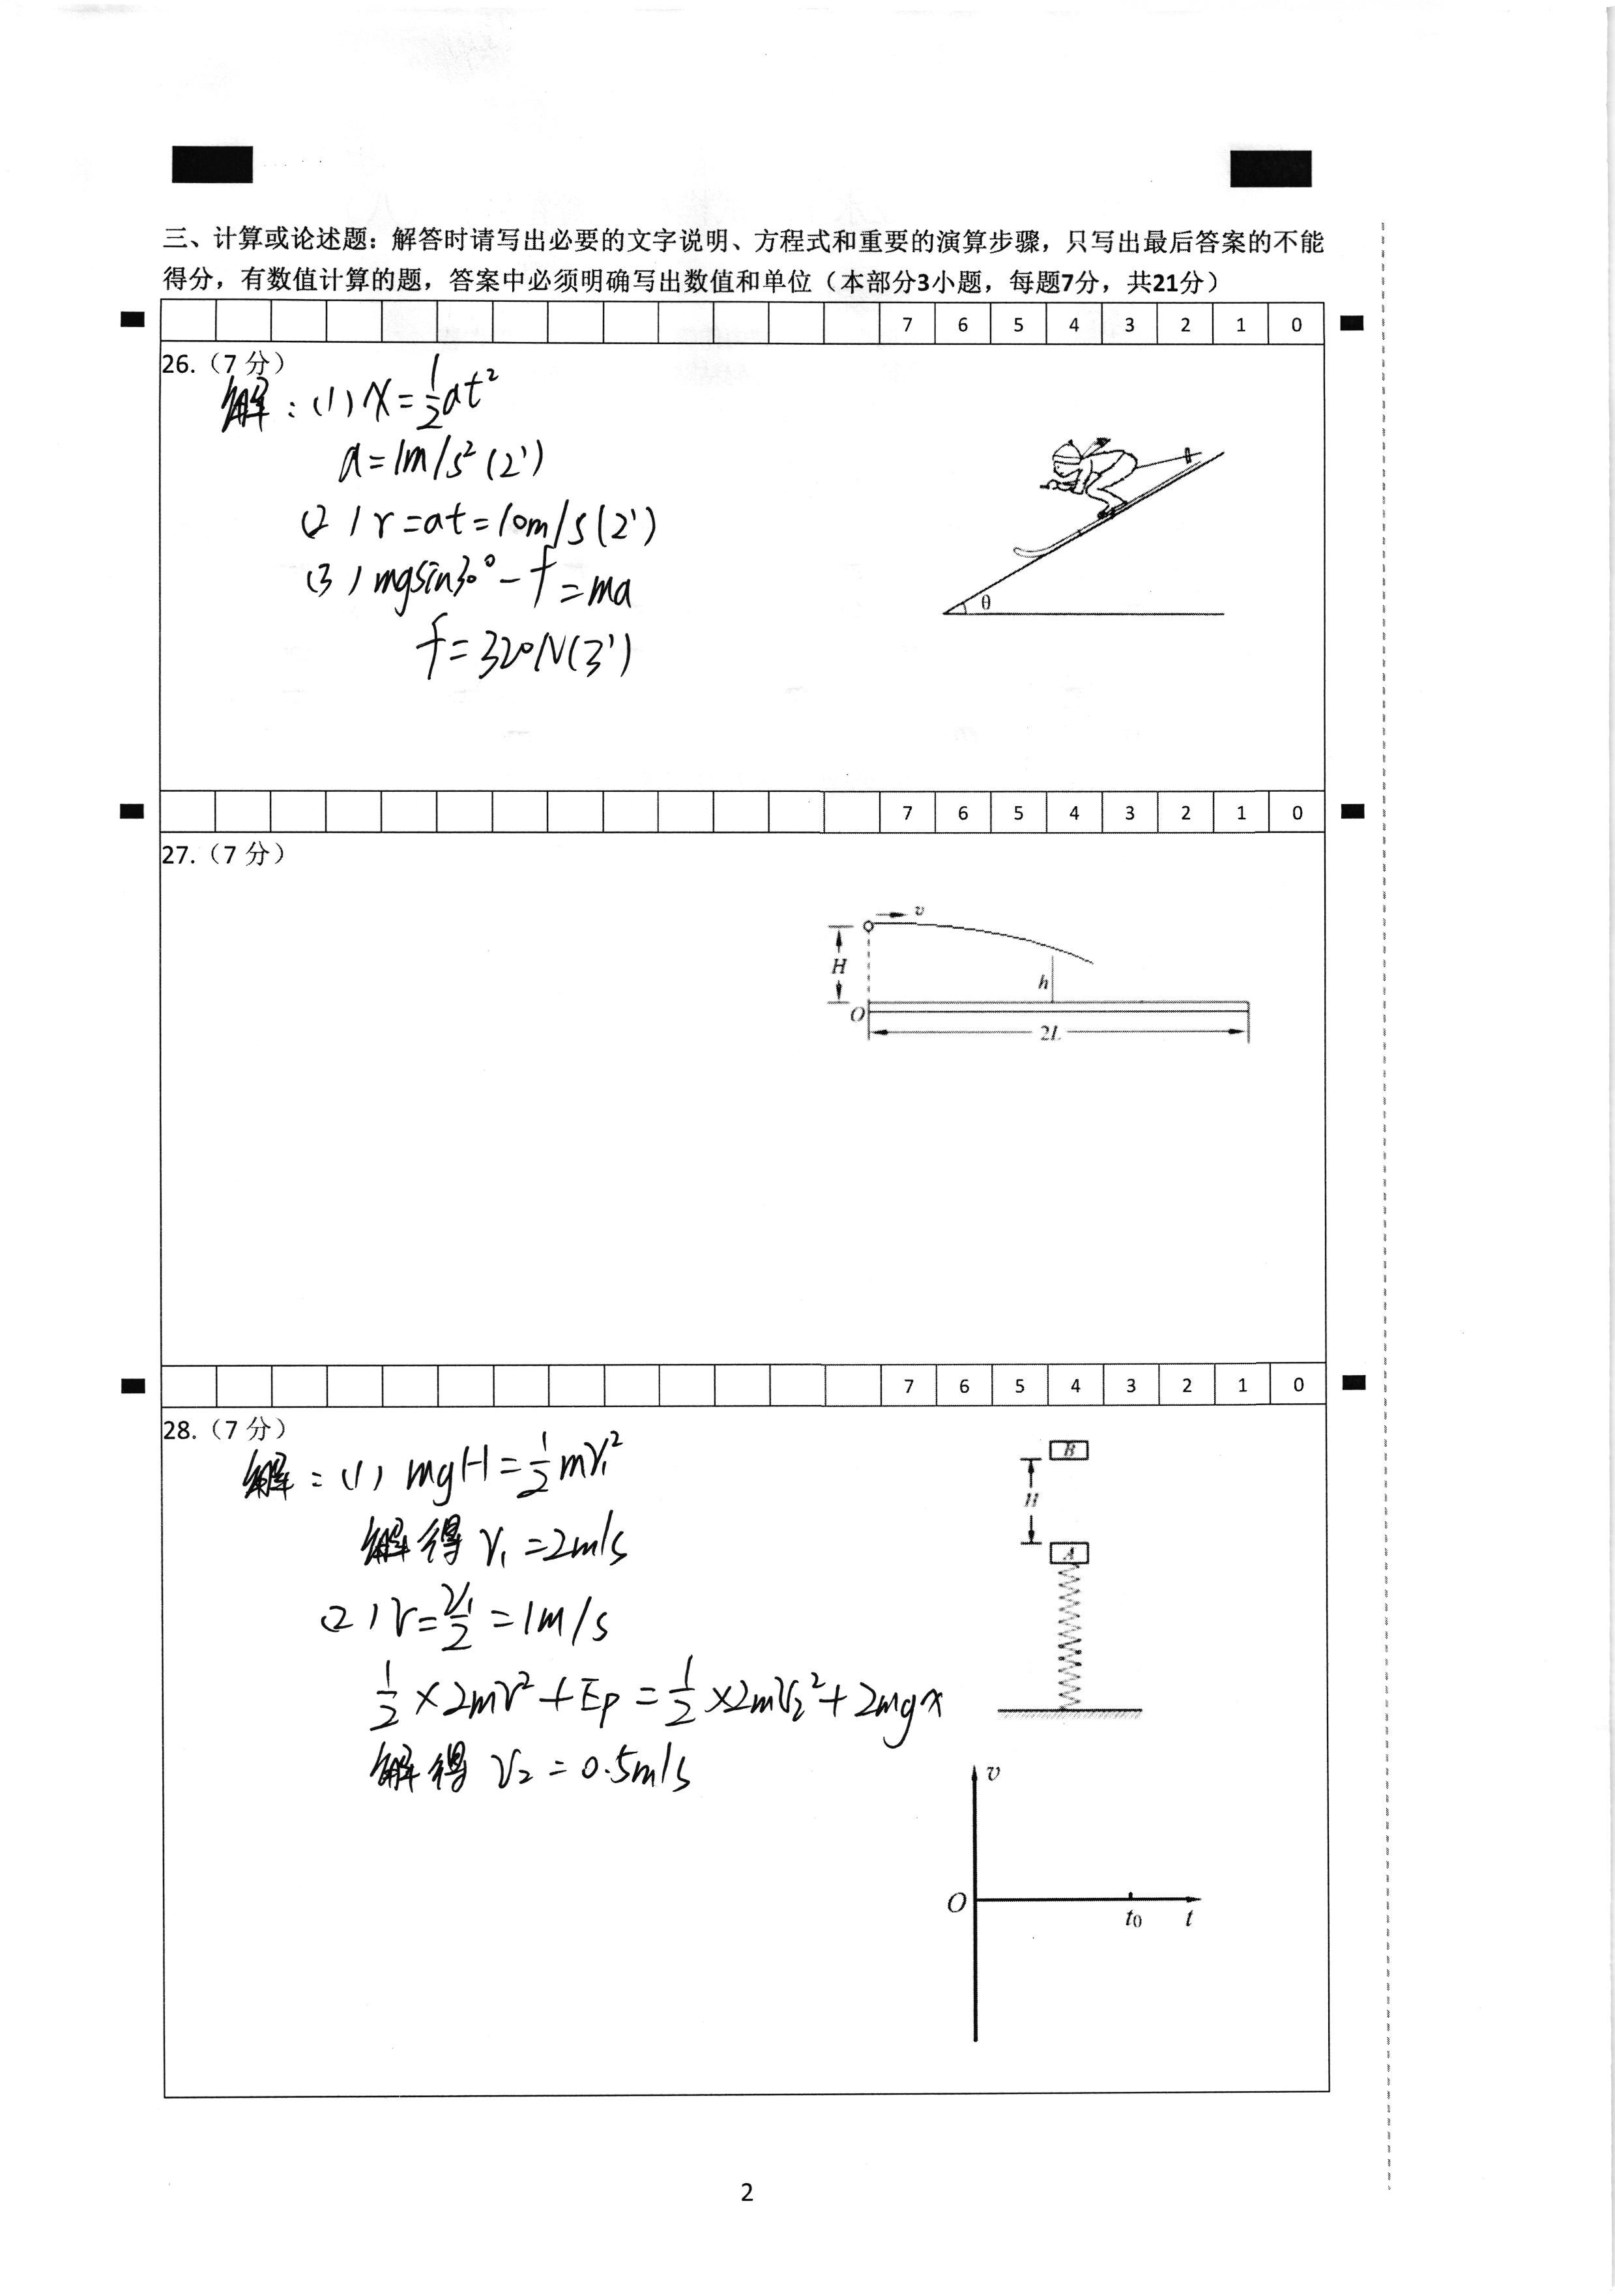 三、计算或论述题：解答时请写出必要的文字说明、方程式和重要的演算步骤，只写出最后答案的不能
得分，有数值计算的题，答案中必须明确写出数值和单位（本部分3小题，每题7分，共21分）
7 6 5 4 3 2 1 0
26.（7 分）
解：(1) x=½at²
a=1m/s² (2')
(2) v=at=10m/s (2')
(3) mgsin30°-f=ma
f=320N(3')
θ
7 6 5 4 3 2 1 0
27.（7 分）
v
H
h
O
2L
7 6 5 4 3 2 1 0
28.（7 分）
解：(1) mgH=½mv₁²
解得 v₁=2m/s
(2) v=v₁/2=1m/s
½×2mv²+Ep=½×2mv₂²+2mgx
解得 v₂=0.5m/s
B
H
A
v
O
t₀ t
2